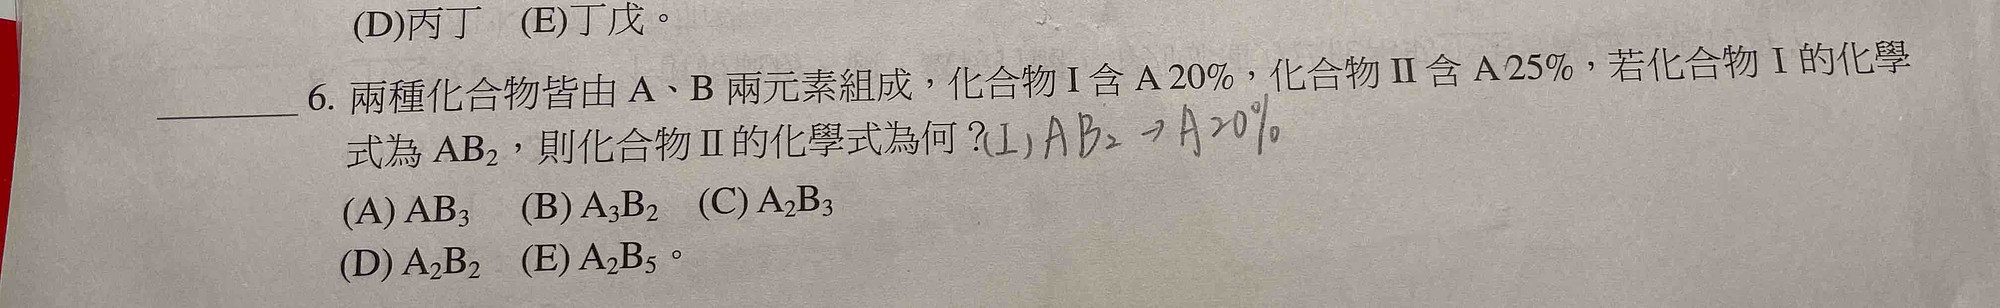 (D)丙丁 (E)丁戊。
6. 兩種化合物皆由 A、B 兩元素組成，化合物 I 含 A 20%，化合物 II 含 A 25%，若化合物 I 的化學
式為 AB₂，則化合物 II 的化學式為何？(I) AB₂ → A 20%
(A) AB₃ (B) A₃B₂ (C) A₂B₃
(D) A₂B₂ (E) A₂B₅。